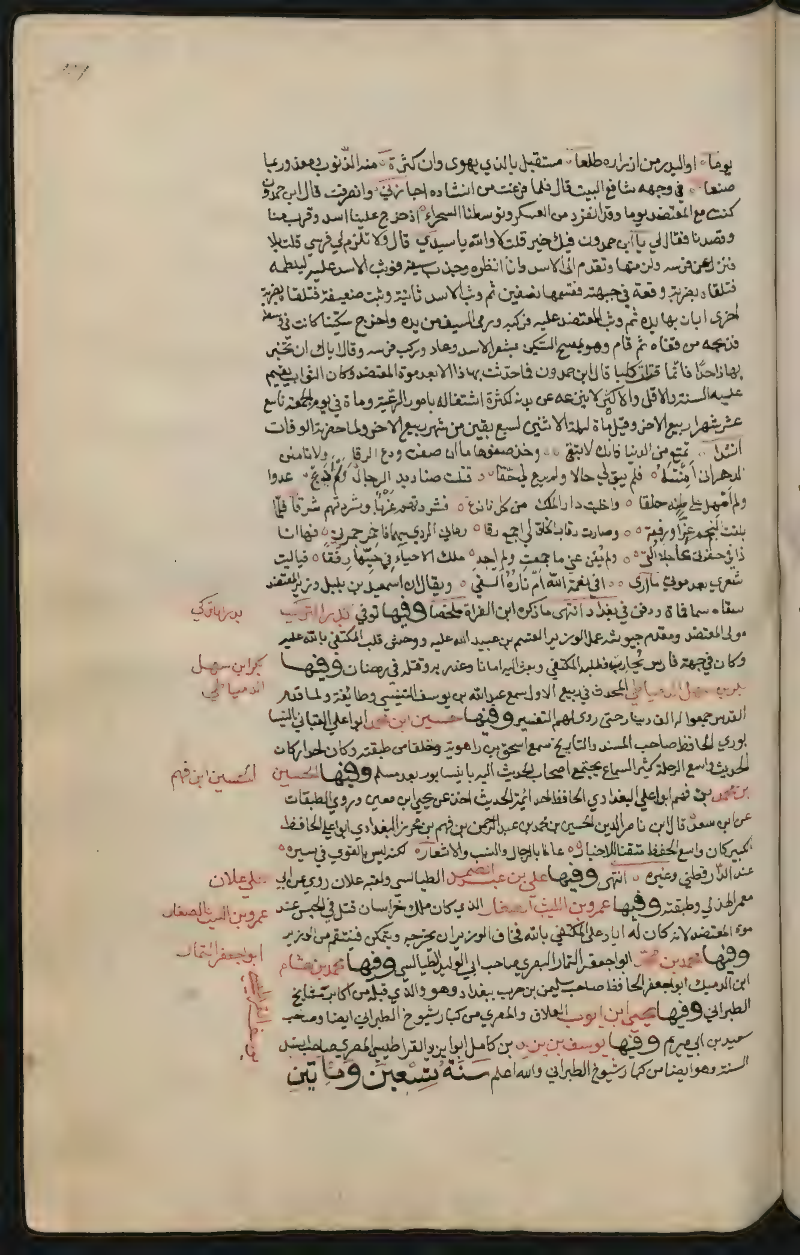 يوما ٥ او البدر من ازراره طلعا ٥ مستقبل بالذي يهوى وان كثرة منه الذنوب ومعذور بما
صنعا ٥ في وجهه شافع البيت قال فلما فرغت من انشاده اجازني وانصرفت قال ابن حمدون
كنت مع المعتضد يوما وقد انفرد من العسكر وتوسطنا الصحراء اذ خرج علينا اسد وقرب منا
وقصدنا فقال لي يا ابن حمدون فيك خير قلت لا والله يا سيدي قال ولا تلزم لي فرسي قلت بلا
فنزل عن فرسه ولزمتها وتقدم الى الاسد وانا انظره وجذب سيفه فوثب الاسد عليه ليلطمه
فتلقاه بضربة وقعة في جبهته فقسمها نصفين ثم وثب الاسد ثانية وثبت ضعيفة فتلقاه بضربة
اخرى ابان بها يده ثم وثب المعتضد عليه فركبه ورمى السيف من يده واخرج سكينا كانت في وسطه
فذبحه من قفاه ثم قام وهو يمسح السكين بشعر الاسد وعاد وركب فرسه وقال اياك ان تخبر
بهذا احدا فانما قتلت كلبا قال ابن حمدون فما حدثت بهذا الا بعد موة المعتضد وكان الثوب يقيم
عليه السنة والاقل والاكثر لا ينزعه عن بدنه لكثرة اشتغاله بامور الرعية وماة في يوم الجمعة تاسع
عشر شهر ربيع الاخر وقيل ماة ليلة الاثنين لسبع بقين من شهر ربيع الاخر ولما حضرته الوفات
انشد ٥ تمتع من الدنيا فانك لا تبقى ٥ وخذ صفوها ما ان صفت ودع الرقا ٥ ولا تامنن
الدهر اني امنته ٥ فلم يبق لي حالا ولم يرع لي حقا ٥ قتلت صناديد الرجال ولم ادع ٥ عدوا
ولم امهل على ظنه خلقا ٥ واخليت دار الملك من كل نازع ٥ فشردتهم غربا وشردتهم شرقا فلما
بلغت النجم عزا ورفعة ٥ وصارت رقاب الخلق لي اجمع رقا ٥ رماني الردى سهما فاخمد جمرتي ٥ فها انا
ذا في حفرتي عاجلا القى ٥ ولم يغن عني ما جمعت ولم اجد ٥ ملك الاحياء في حيها رفقا ٥ فيا ليت
شعري بعد موتي ما ارى ٥ افي نعمة الله ام ناره القى ٥ ويقال ان اسمعيل بن بلبل وزير المعتضد
سقاه سما فماة ودفن في بغداد انتهى ما ذكره ابن الفراة ملخصا وفيها توفي بدر التركي
مولى المعتضد ومقدم جيوشه عمل الوزير القسم بن عبيد الله عليه ووحش قلب المكتفي بالله عليه
وكان في جهة فارس يحارب فطلبه المكتفي وبعث اليه امانا وغدر به وقتله في رمضان وفيها
بكر بن سهل الدمياطي المحدث في ربيع الاول سمع عبد الله بن يوسف التنيسي وطايفة ولما قدم
القدس جمعوا له الف دينار حتى روى لهم التفسير وفيها حسين ابن محمد ابو علي القباني النيسا
بوري الحافظ صاحب المسند والتاريخ سمع اسحق بن راهوية وخلقا من طبقته وكان احد اركان
الحديث واسع الرحلة كثير السماع يجتمع اصحاب الحديث اليه بنيسابور بعد مسلم وفيها الحسين
بن محمد بن فهم ابو علي البغدادي الحافظ احد ائمة الحديث اخذ عن يحيى ابن معين وروى الطبقات
عن ابن سعد قال ابن ناصر الدين الحسين بن محمد بن عبد الرحمن بن فهم بن محرز البغدادي ابو علي الحافظ
الكبير كان واسع الحفظ متقنا للاخبار ٥ عالما بالرجال والنسب والاشعار ٥ لكنه ليس بالقوي في سيره ٥
عند الدارقطني وغيره ٥ انتهى وفيها علي بن عبد الصمد الطيالسي ولقبه علان روى عن ابي
معمر الهذلي وطبقته وفيها عمرو بن الليث الصفار الذي كان ملك خراسان قتل في الحبس عند
موة المعتضد لانه كان له اياد على المكتفي بالله فخاف الوزير ان يخرجه ويتمكن فينتقم من الوزير
وفيها محمد بن محمد ابو جعفر التمار البصري صاحب ابي الوليد الطيالسي وفيها محمد بن هشام
ابن الدميك ابو جعفر الحافظ صاحب سليمن بن حرب ببغداد وهو والذي قبله من اكابر مشايخ
الطبراني وفيها يحيى ابن ايوب العلاف والمصري من كبار شيوخ الطبراني ايضا وصاحب
سعيد بن ابي مريم وفيها يوسف بن يزيد بن كامل ابو يزيد القراطيسي المصري صاحب اسد
السنة وهو ايضا من كبار شيوخ الطبراني والله اعلم سنة تسعين وماتين
بدر التركي
بكر ابن سهل
الدمياطي
الحسين ابن فهم
علي علان
عمرو بن الليث الصفار
ابو جعفر التمار